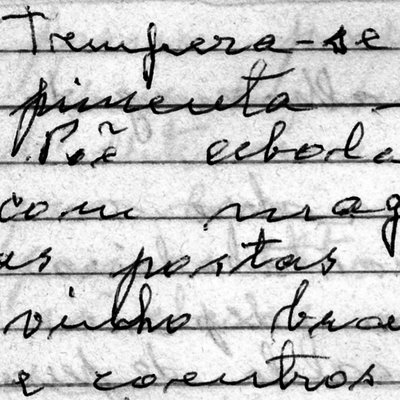 Tempera-se
pimenta -
Põe cebola
com mag
as postas
vinho bra
e coentros